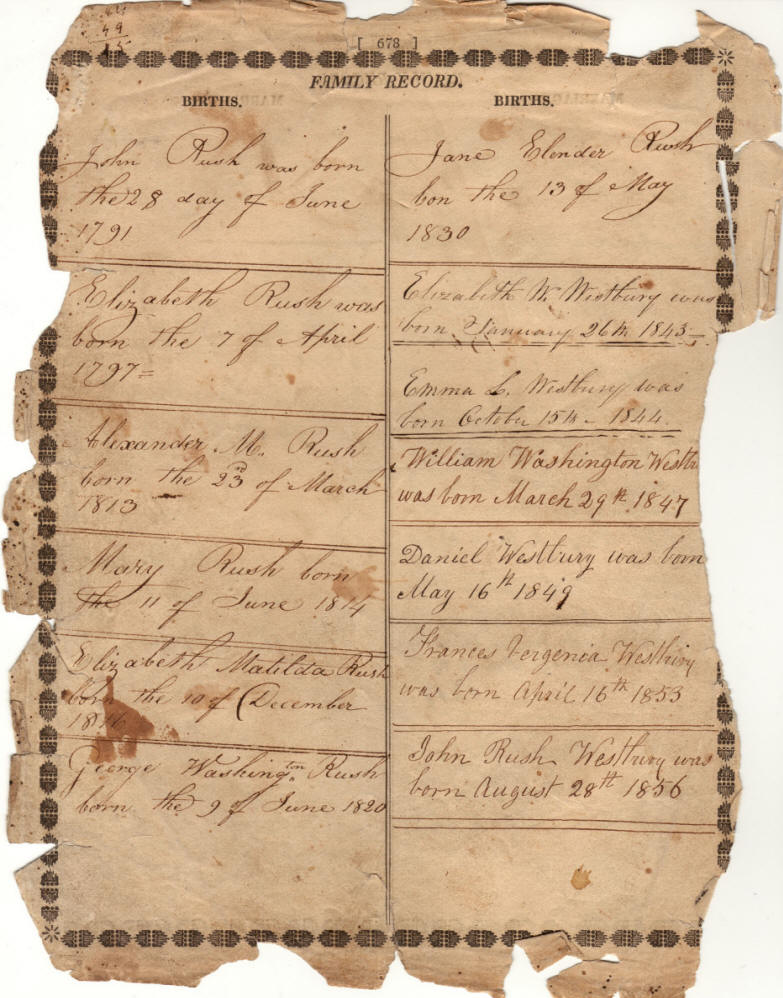 49
[ 678 ]
FAMILY RECORD.
BIRTHS.
John Rush was born
the 28 day of June
1791
Elizabeth Rush was
born the 7 of April
1797=
Alexander M. Rush
born the 23 of March
1813
Mary Rush born
the 11 of June 1814
Elizabeth Matilda Rush
born the 10 of December
George Washington Rush
born the 9 of June 1820
BIRTHS.
Jane Elender Rush
bon the 13 of May
1830
Elizabeth W. Westbury was
born January 26th 1843
Emma L. Westbury was
born October 15th - 1844.
William Washington Westbu
was born March 29th 1847
Daniel Westbury was born
May 16th 1849
Frances Vergenia Westbury
was born April 16th 1853
John Rush Westbury was
born August 28th 1856